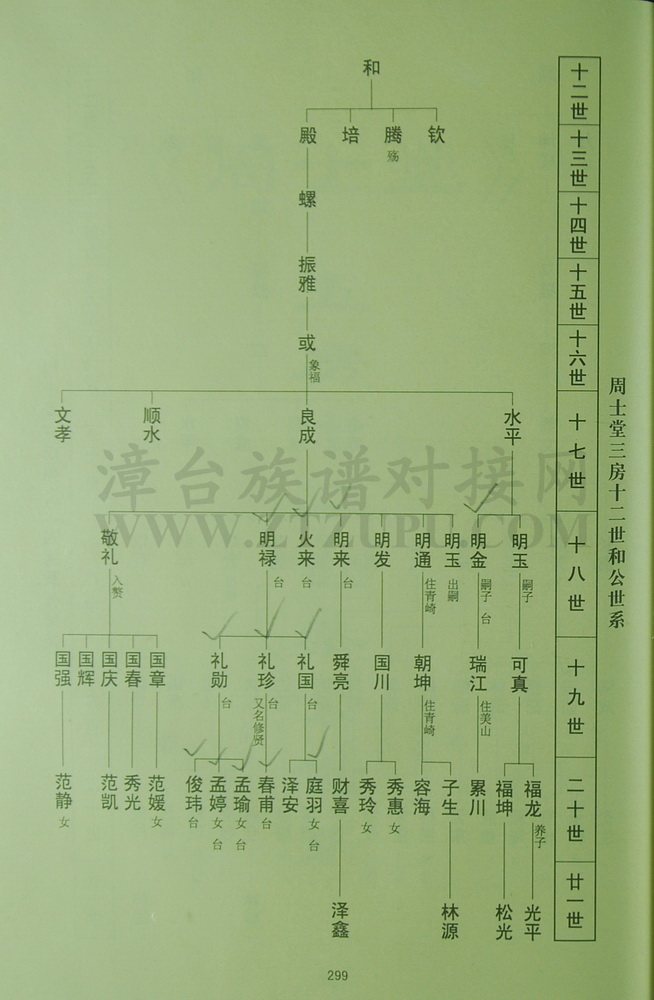 周士堂三房十二世和公世系
十二世
十三世
十四世
十五世
十六世
十七世
十八世
十九世
二十世
廿一世
和
钦
腾
殇
培
殿
螺
振雅
或
象福
水平
良成
顺水
文孝
明玉
嗣子
明金
嗣子 台
明玉
出嗣
明通
住青崎
明发
明来
台
火来
台
明禄
台
敬礼
入赘
可真
瑞江
住美山
朝坤
住青崎
国川
舜亮
礼国
台
礼珍
台
又名修贤
礼勋
台
国章
国春
国庆
国辉
国强
福龙
养子
福坤
累川
子生
容海
秀惠
女
秀玲
女
财喜
庭羽
女 台
泽安
春甫
台
孟瑜
女 台
孟婷
女 台
俊玮
台
范媛
女
秀光
范凯
范静
女
光平
松光
林源
泽鑫
漳台族谱对接网
WWW.ZTZUPU.COM
299